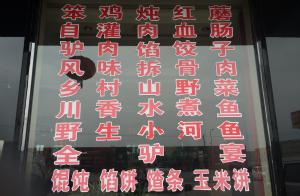 笨鸡炖红蘑
自灌肉血肠
驴肉馅饺子
风味拆骨肉
乡村山野菜
川香水煮鱼
野生小河鱼
全驴宴
馄饨 馅饼 馇条 玉米饼